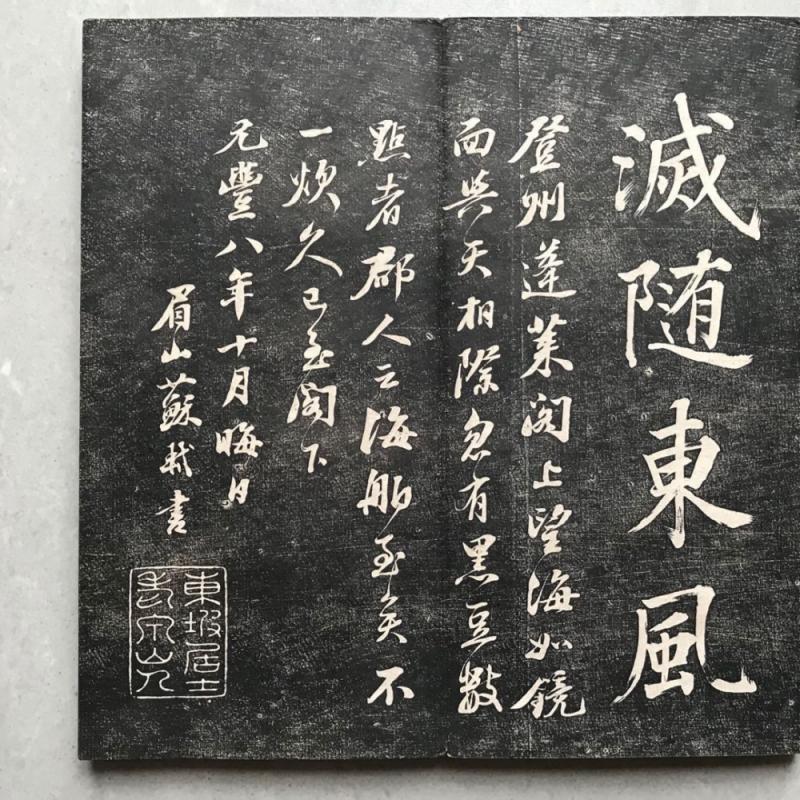 滅随東風
登州蓬莱閣上望海如鏡
面與天相際忽有黑豆數
點者郡人云海舶至矣不
一炊久已至閣下
元豐八年十月晦日
眉山蘇軾書
東坡居士
老泉山人